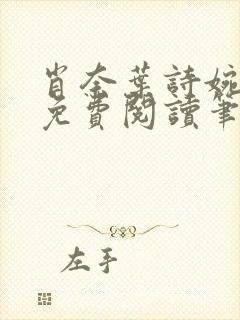 肖奈葉詩婉
免費閱讀筆
左手